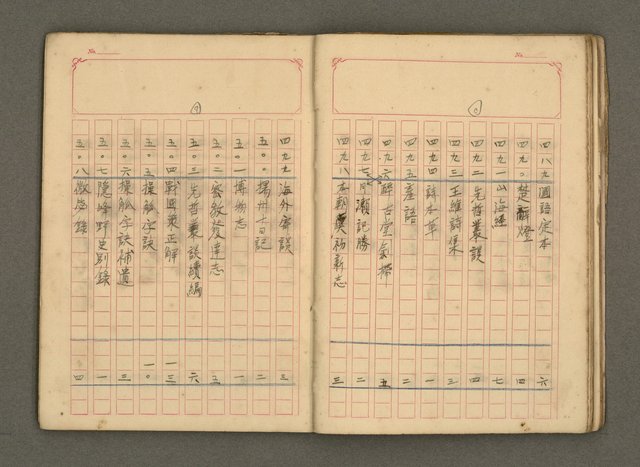 No.
四八九 國語定本 六
四九〇 楚辭燈 四
四九一 山海經 七
四九二 先哲叢談 四
四九三 王維詩集 三
四九四 詩本草 一
四九五 產語 二
四九六 醉古堂劍掃 五
四九七 月瀨記勝 二
四九八 本朝虞初新志 三
No.
四九九 海外奇談 三
五〇〇 揚州十日記 二
五〇一 博物志 一
五〇二 發達志 五
五〇三 先哲叢談續編 六
五〇四 戰國策正解 一三
五〇五 操觚字訣 一〇
五〇六 操觚字訣補遺 三
五〇七 隱峰野史別錄 一
五〇八 徵 錄 四